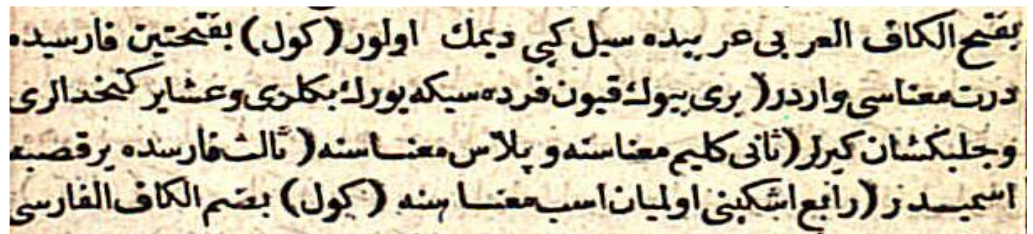 بفتح الكاف العربی عربیده سیل کبی دیمك اولور (کول) بفتحتین فارسیده
درت معناسی واردر (بری بیوك قیون فرده سیکه یورك بکلری وعشایر کتخدالری
وجلبکشان کیرلر (ثانی کلیم معناسنه و پلاس معناسنه (ثالث فارسده بر قصبه
اسمیدر (رابع اشکینی اولمیان اسب معناسنه (کول) بضم الکاف الفارسی